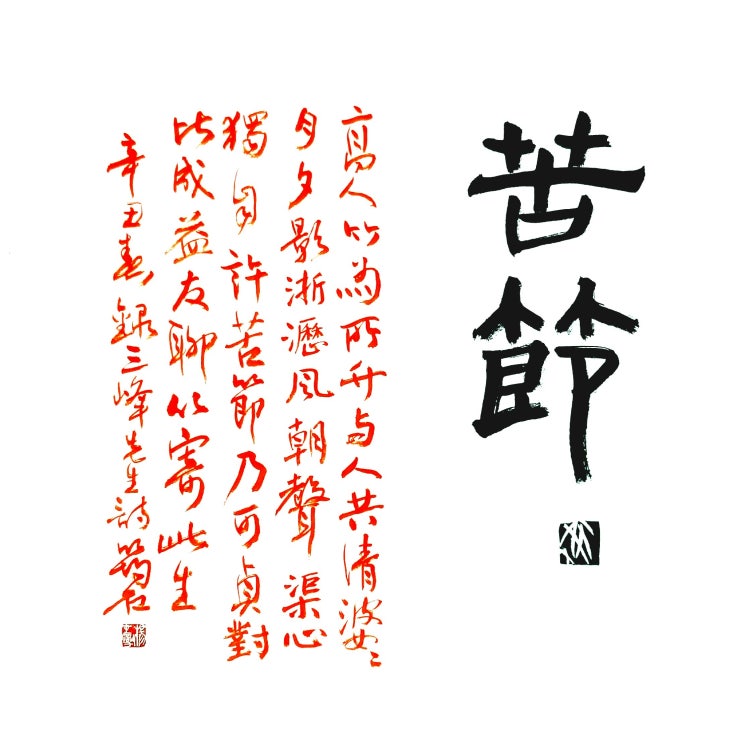 苦節
高人竹為所与人共清婆〻
月夕影浙瀝風朝聲渠心
獨自許苦節乃可貞對
此成益友聊以寄此生
辛丑春録三峰先生詩